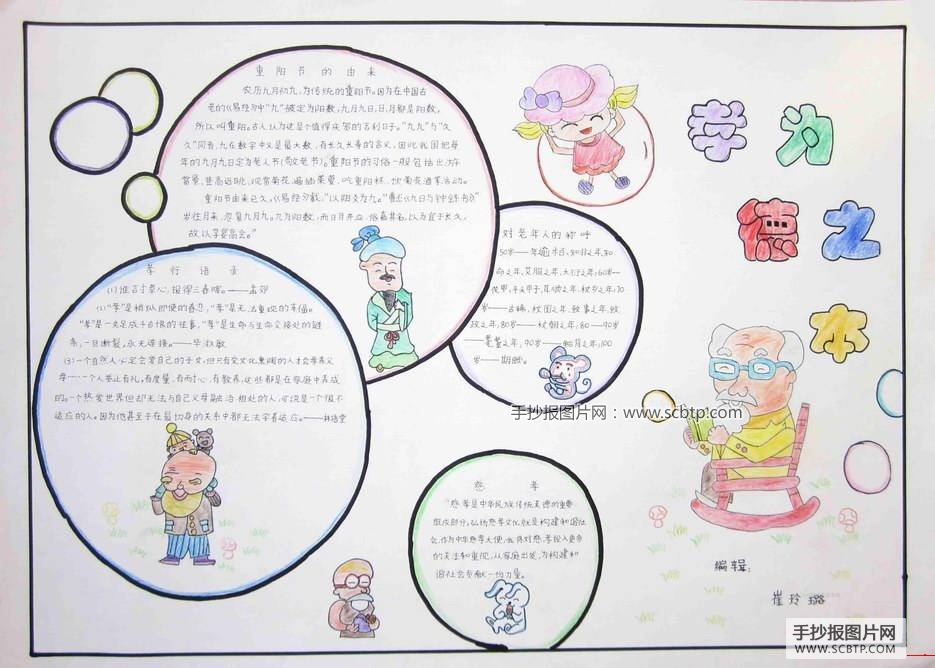 重阳节的由来
农历九月初九,为传统的重阳节。因为在中国古
老的《易经》中"九"被定为阳数,九月九日,日月都是阳数,
所以叫重阳。古人认为这是个值得庆贺的吉利日子。"九九"与"久
久"同音,九在数字中又是最大数,有长久长寿的含义,因此我国把每
年的九月九日定为老人节(敬老节)。重阳节的习俗一般包括出游
赏景、登高远眺、观赏菊花、遍插茱萸、吃重阳糕、饮菊花酒等活动。
重阳节由来已久,《易经》载,"以阳爻为九。"曹丕《九日与钟繇书》
岁往月来,忽复九月九。九为阳数,而日月并应,俗嘉其名,以为宜于长久,
故以享宴高会。"
学为
德之
本
对老年人的称呼
50岁——年逾半百、知非之年、知
命之年、艾服之年、大衍之年;60岁—
花甲、平头甲子、耳顺之年、杖乡之年;70
岁——古稀、杖国之年、致事之年、致
政之年;80岁——杖朝之年;80—90岁
——耄耋之年;90岁——鲐背之年;100
岁——期颐。
孝行语录
(1)谁言寸草心,报得三春晖。——孟郊
(2)"孝"是稍纵即逝的眷恋,"孝"是无法重现的幸福。
"孝"是一失足成千古恨的往事,"孝"是生命与生命交接处的链
条,一旦断裂,永无连接。——毕淑敏
(3)一个自然人必定会爱自己的子女,但只有受文化熏陶的人才会孝养父
母……一个人举止有礼,有度量、有耐心、有教养,这些都是在家庭中养成
的。一个热爱世界但却无法与自己父母融洽相处的人,可说是一个很不
适应的人。因为他甚至于在最切身的关系中都无法学着适应。——林语堂
手抄报图片网:www.scbtp.com
慈孝
"慈孝是中华民族传统美德的重要
组成部分,弘扬慈孝文化就是构建和谐社
会,作为中华慈孝大使,我将对慈、孝投入更多
的关注和重视,从家庭出发,为构建和
谐社会贡献一份力量。
编辑:
崔玲璐
手抄报图片网
WWW.SCBTP.COM